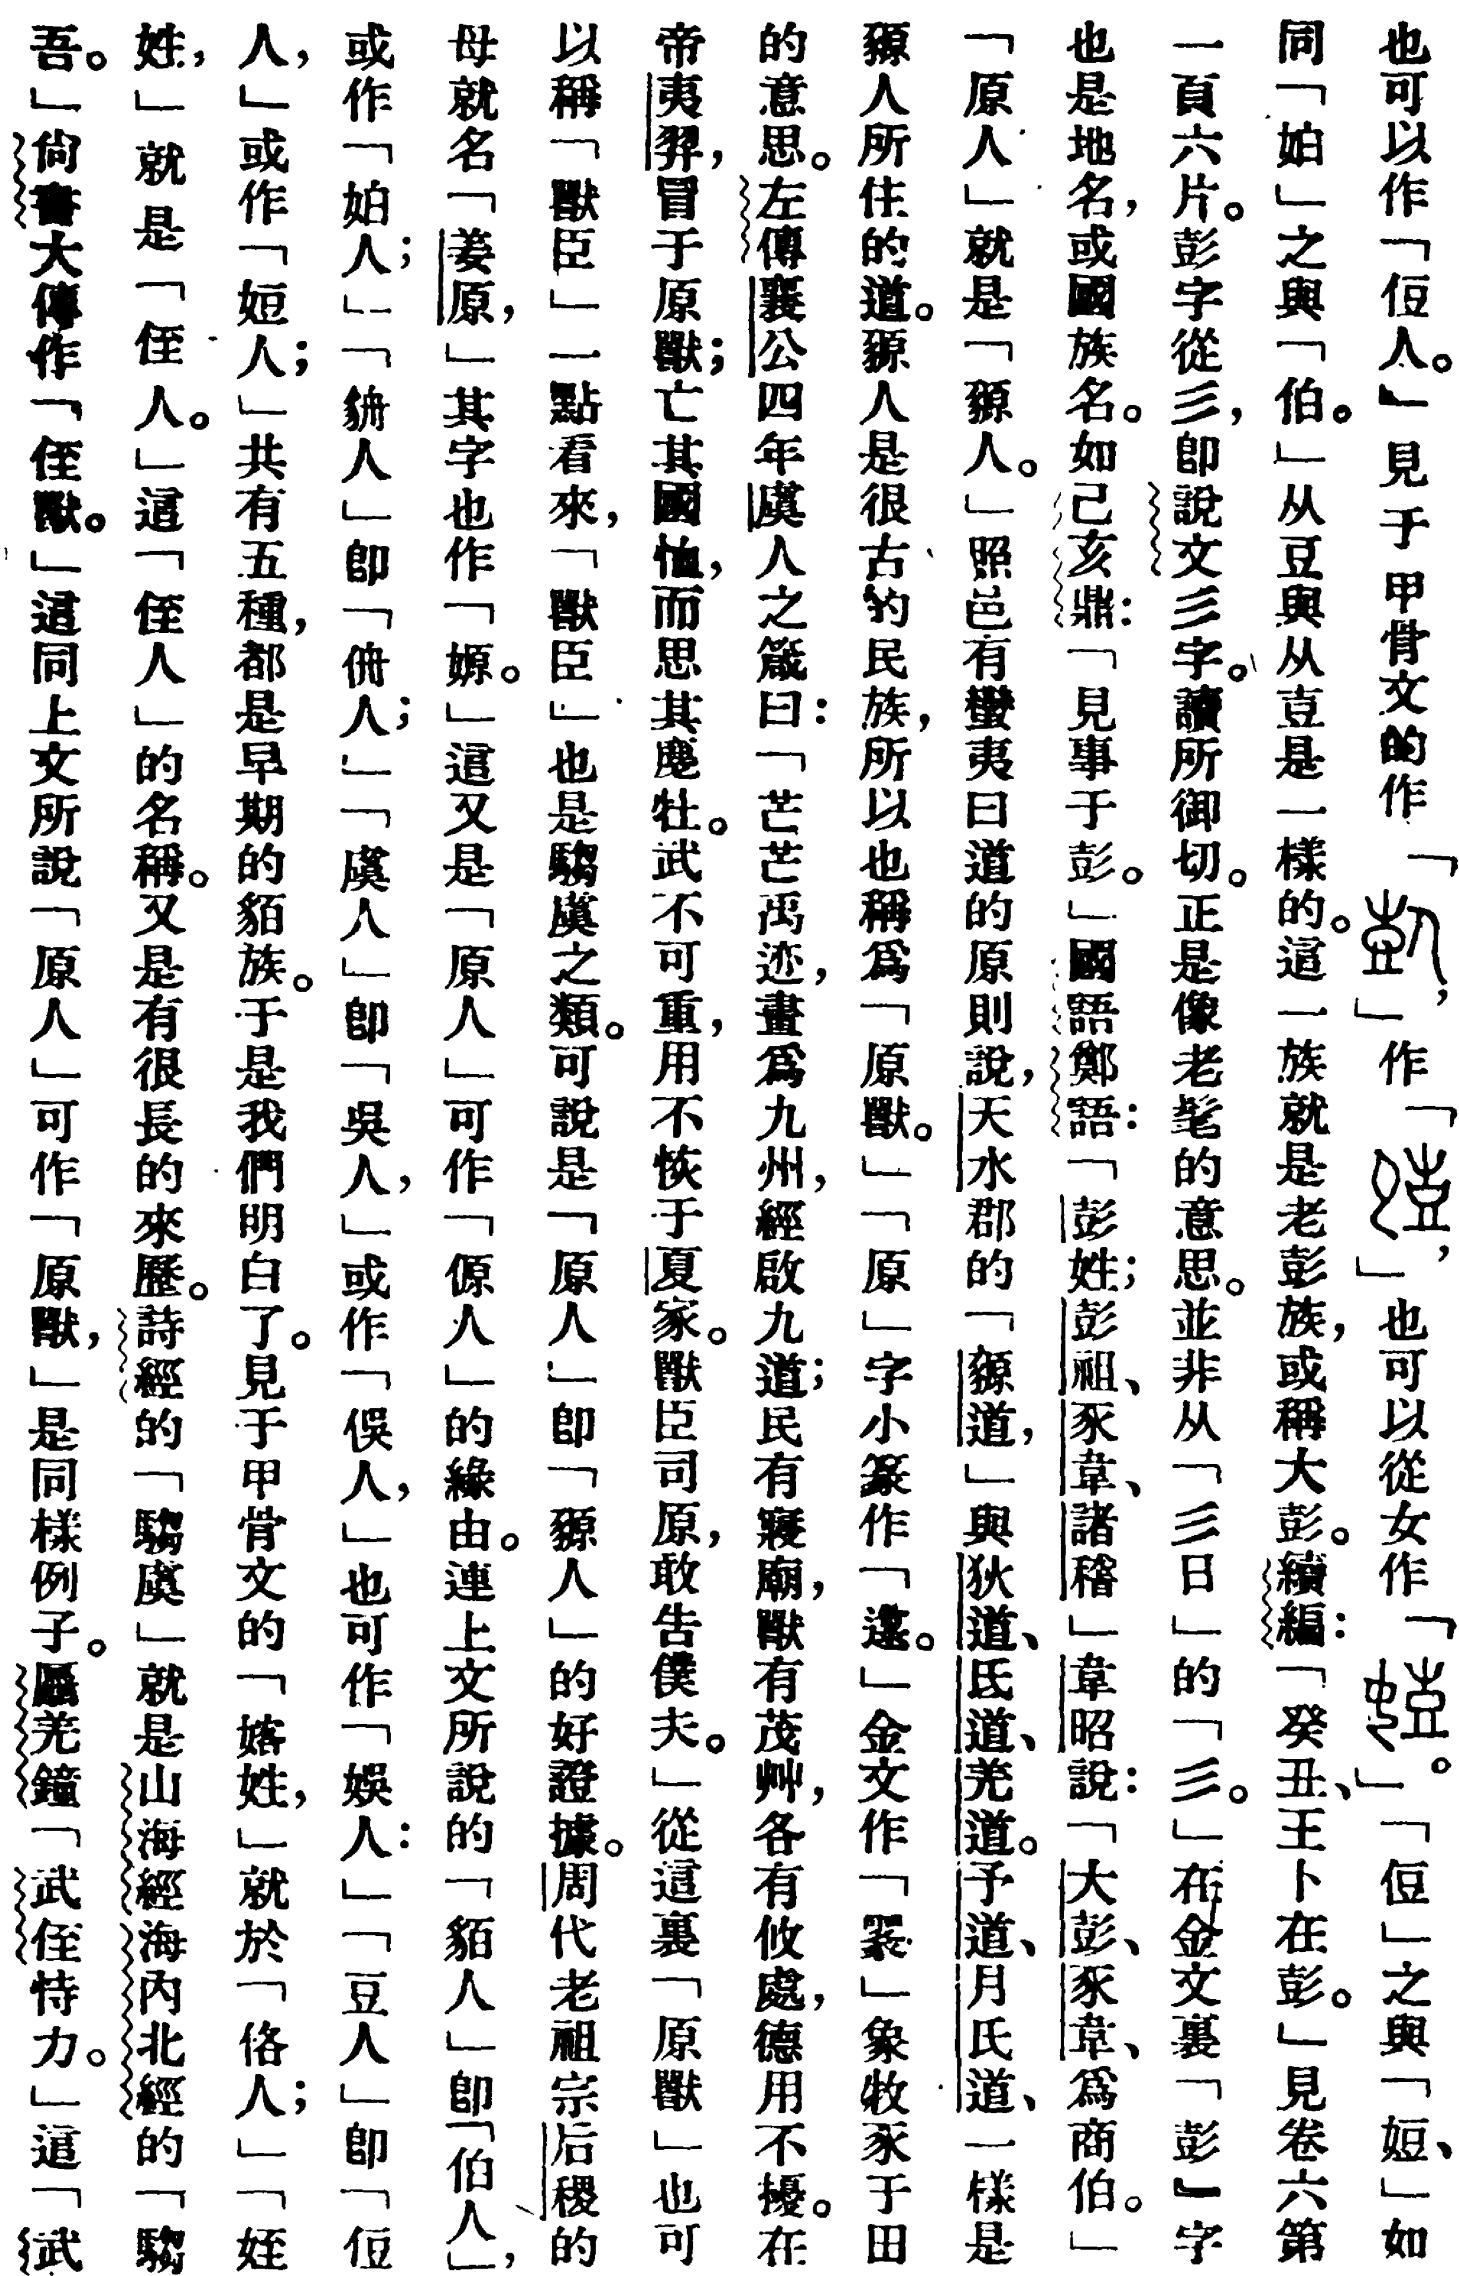 也可以作「侸人。」見于甲骨文的作「，」作「，」也可以從女作「。」「侸」之與「𡝈、」如
同「妲」之與「伯。」从豆與从壴是一樣的。這一族就是老彭族，或稱大彭。續編：「癸丑、王卜在彭。」見卷六第
一頁六片。彭字從彡，卽說文彡字。讀所御切。正是像老髦的意思。並非从「彡日」的「彡。」在金文裏「彭」字
也是地名，或國族名。如己亥鼎：「見事于彭。」國語鄭語：「彭姓；彭祖、豕韋、諸稽」韋昭說：「大彭、豕韋、爲商伯。」
「原人」就是「豲人。」照邑有蠻夷曰道的原則說，天水郡的「豲道，」與狄道、氐道、羌道。予道、月氏道、一樣是
豲人所住的道。豲人是很古的民族，所以也稱爲「原獸。」「原」字小篆作「邍。」金文作「」象牧豕于田
的意思。左傳襄公四年虞人之箴曰：「芒芒禹迹，畫爲九州，經啟九道；民有寢廟，獸有茂艸，各有攸處，德用不擾。在
帝夷羿，冒于原獸；亡其國恤，而思其麀牡。武不可重，用不恢于夏家。獸臣司原，敢告僕夫。」從這裏「原獸」也可
以稱「獸臣」一點看來，「獸臣」也是騶虞之類。可說是「原人」卽「豲人」的好證據。周代老祖宗后稷的
母就名「姜原，」其字也作「嫄。」這又是「原人」可作「傆人」的緣由。連上文所說的「貊人」卽「伯人」，
或作「妲人；」「貈人」卽「侜人；」「虞人」卽「吳人，」或作「俁人，」也可作「娛人：」「豆人」卽「侸
人，」或作「𡝈人；」共有五種，都是早期的貊族。于是我們明白了。見于甲骨文的「㛳姓，」就於「佫人；」「姪
姓，」就是「侄人。」這「侄人」的名稱。又是有很長的來歷。詩經的「騶虞」就是山海經海內北經的「騶
吾。」尙書大傳作「侄獸。」這同上文所說「原人」可作「原獸，」是同樣例子。䲒羌鐘「武侄恃力。」這「武